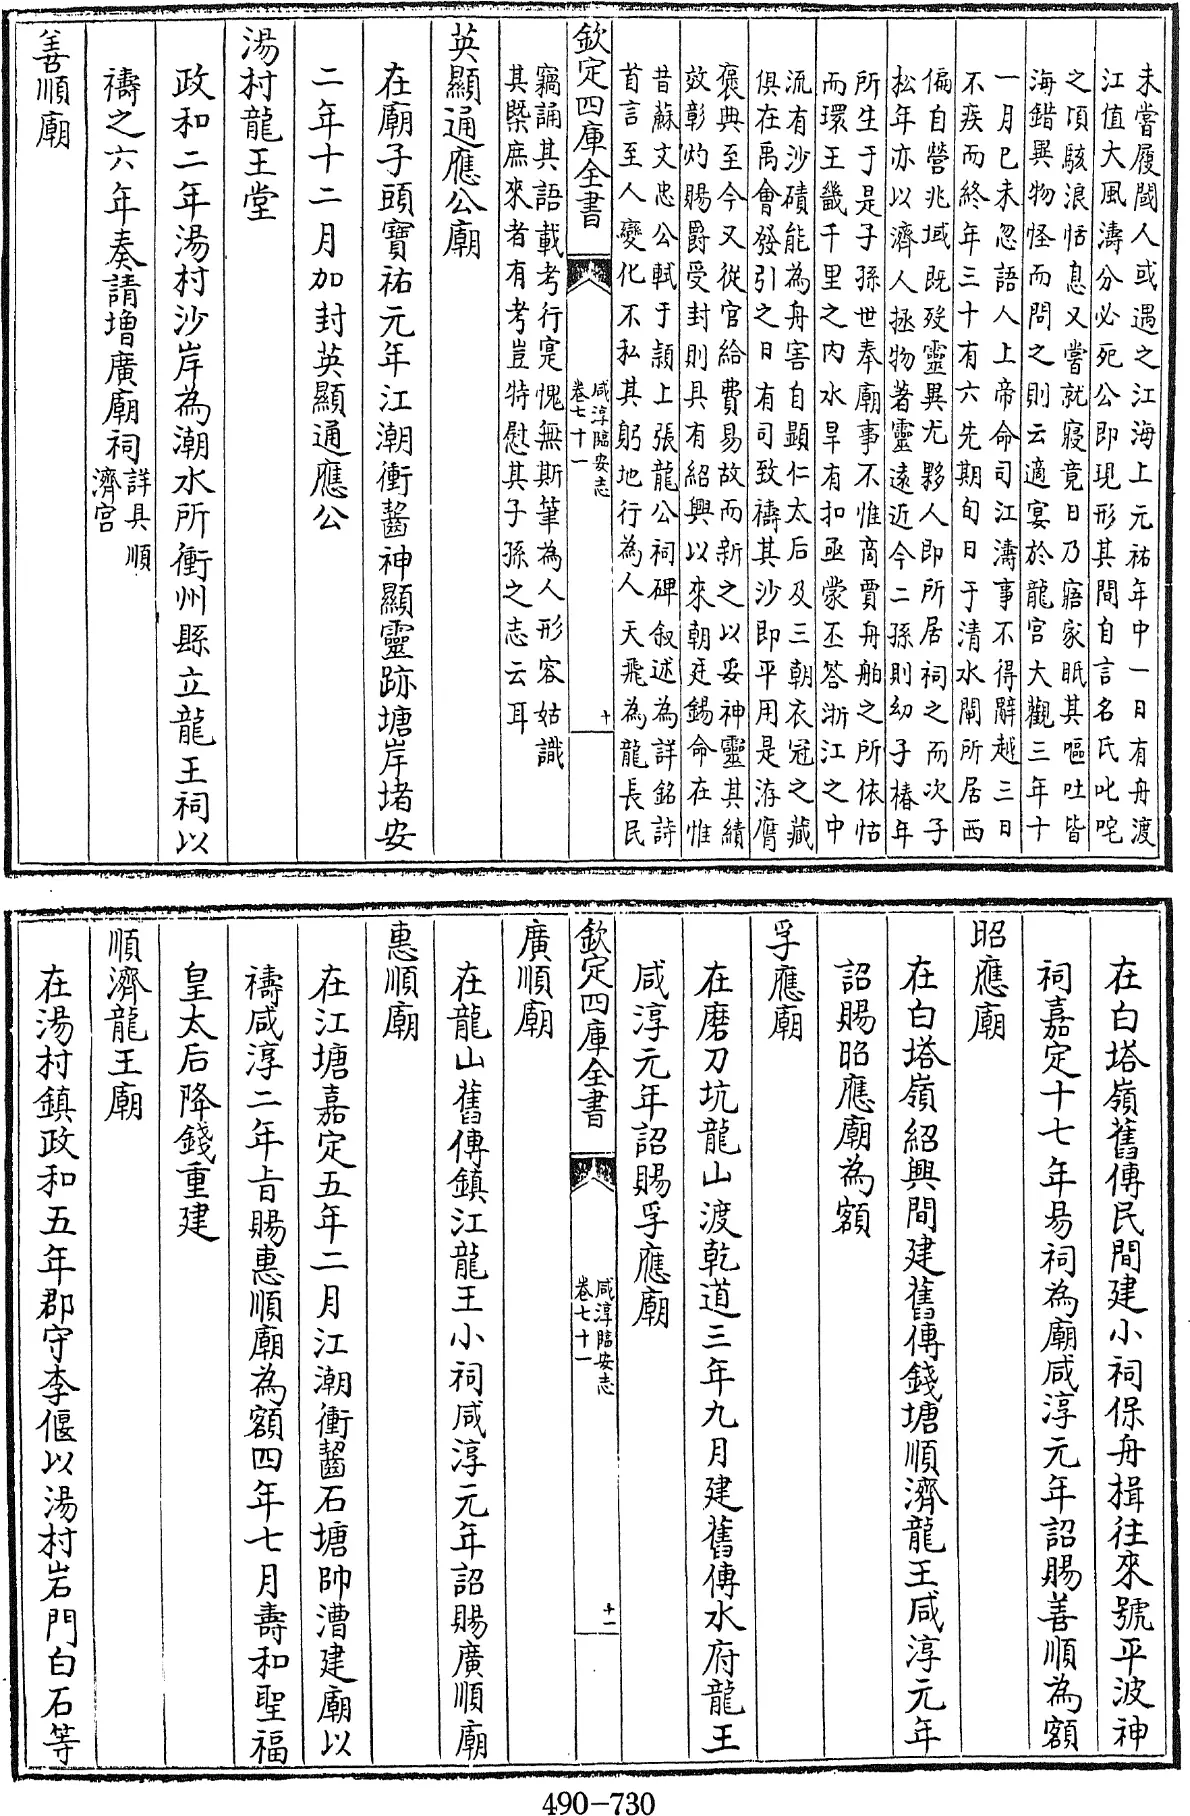 未嘗履閾人或遇之江海上元祐年中一日有舟渡
江值大風濤分必死公即現形其間自言名氏叱咤
之頃駭浪恬息又嘗就寢竟日乃寤家眡其嘔吐皆
海錯異物怪而問之則云適宴於龍宮大觀三年十
一月巳未忽語人上帝命司江濤事不得辭越三日
不疾而終年三十有六先期旬日于清水閘所居西
偏自營兆域既歿靈異尤夥人即所居祠之而次子
松年亦以濟人拯物著靈遠近今二孫則幼子椿年
所生于是子孫世奉廟事不惟商賈舟舶之所依怙
而環王畿千里之内水旱有扣亟蒙丕答浙江之中
流有沙磧能為舟害自顯仁太后及三朝衣冠之藏
俱在禹會發引之日有司致禱其沙即平用是洊膺
褒典至今又從官給費易故而新之以妥神靈其績
效彰灼賜爵受封則具有紹興以來朝廷錫命在惟
昔蘇文忠公軾于頴上張龍公祠碑叙述為詳銘詩
首言至人變化不私其躬地行為人天飛為龍長民
欽定四庫全書
咸淳臨安志
卷七十一
十
竊誦其語載考行寔愧無斯筆為人形容姑識
其槩庶來者有考豈特慰其子孫之志云耳
英顯通應公廟
在廟子頭寶祐元年江潮衝齧神顯靈跡塘岸堵安
二年十二月加封英顯通應公
湯村龍王堂
政和二年湯村沙岸為潮水所衝州縣立龍王祠以
禱之六年奏請增廣廟祠詳具順
濟宫
善順廟
在白塔嶺舊傳民間建小祠保舟揖往來號平波神
祠嘉定十七年易祠為廟咸淳元年詔賜善順為額
昭應廟
在白塔嶺紹興間建舊傳錢塘順濟龍王咸淳元年
詔賜昭應廟為額
孚應廟
在磨刀坑龍山渡乾道三年九月建舊傳水府龍王
咸淳元年詔賜孚應廟
欽定四庫全書
咸淳臨安志
卷七十一
十一
廣順廟
在龍山舊傳鎮江龍王小祠咸淳元年詔賜廣順廟
惠順廟
在江塘嘉定五年二月江潮衝齧石塘帥漕建廟以
禱咸淳二年㫖賜惠順廟為額四年七月壽和聖福
皇太后降錢重建
順濟龍王廟
在湯村鎮政和五年郡守李偃以湯村岩門白石等
490-730